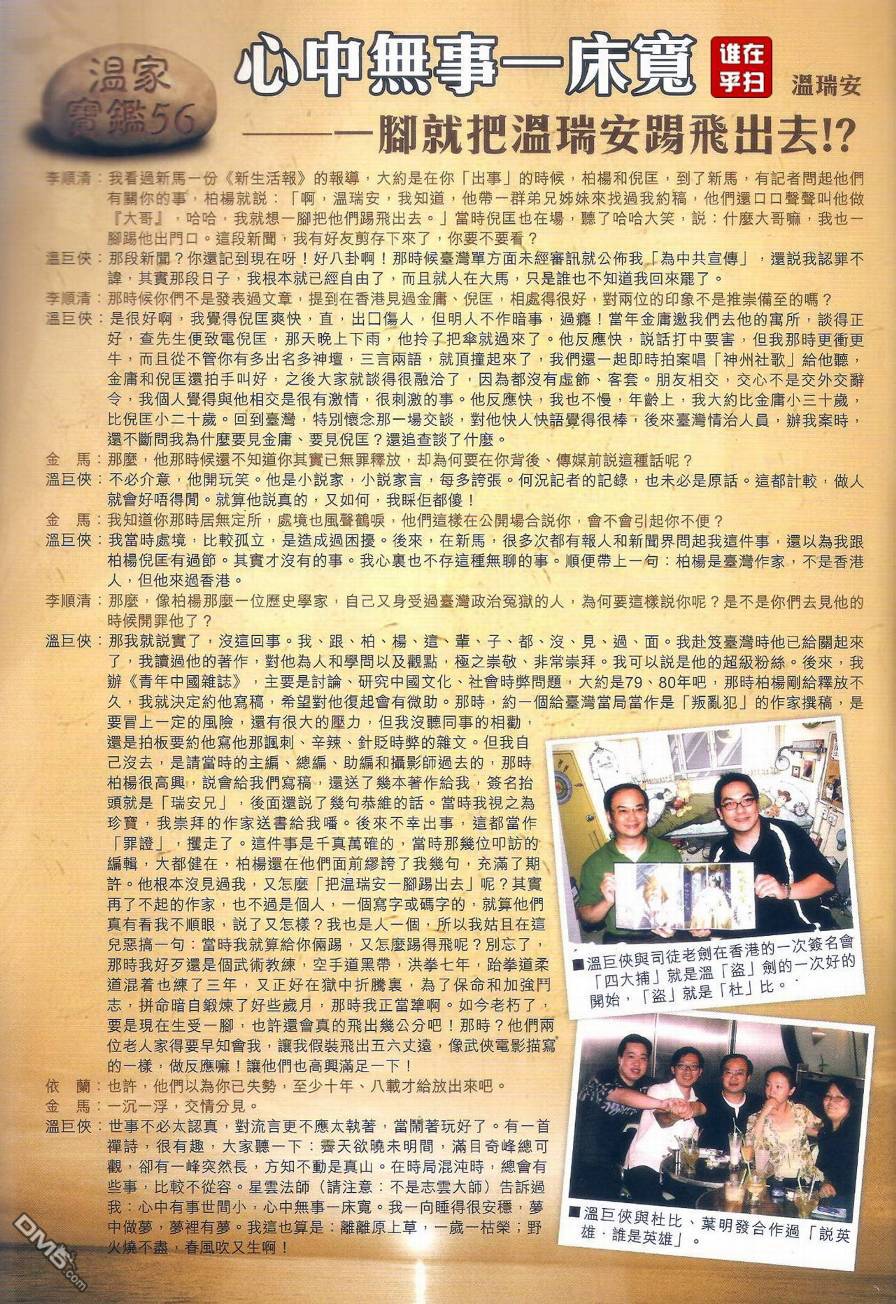 溫家
寶鑑56
心中無事一床寬
誰在
乎扫
溫瑞安
——一腳就把溫瑞安踢飛出去!?
李順清：我看過新馬一份《新生活報》的報導，大約是在你「出事」的時候，柏楊和倪匡，到了新馬，有記者問起他們
有關你的事，柏楊就説：「啊，溫瑞安，我知道，他帶一群弟兄姊妹來找過我約稿，他們還口口聲聲叫他做
『大哥』，哈哈，我就想一腳把他們踢飛出去。」當時倪匡也在場，聽了哈哈大笑，説：什麼大哥嘛，我也一
腳踢他出門口。這段新聞，我有好友剪存下來了，你要不要看？
溫巨俠：那段新聞？你還記到現在呀！好八卦啊！那時候臺灣單方面未經審訊就公佈我「為中共宣傳」，還説我認罪不
諱，其實那段日子，我根本就已經自由了，而且就人在大馬，只是誰也不知道我回來罷了。
李順清：那時候你們不是發表過文章，提到在香港見過金庸、倪匡，相處得很好，對兩位的印象不是推崇備至的嗎？
溫巨俠：是很好啊，我覺得倪匡爽快，直，出口傷人，但明人不作暗事，過癮！當年金庸邀我們去他的寓所，談得正
好，查先生便致電倪匡，那天晚上下雨，他拎了把傘就過來了。他反應快，説話打中要害，但我那時更衝更
牛，而且從不管你有多出名多神壇，三言兩語，就頂撞起來了，我們還一起即時拍案唱「神州社歌」給他聽，
金庸和倪匡還拍手叫好，之後大家就談得很融洽了，因為都沒有虛飾、客套。朋友相交，交心不是交外交辭
令，我個人覺得與他相交是很有激情，很刺激的事。他反應快，我也不慢，年齡上，我大約比金庸小三十歲，
比倪匡小二十歲。回到臺灣，特別懷念那一場交談，對他快人快語覺得很棒，後來臺灣情治人員，辦我案時，
還不斷問我為什麼要見金庸、要見倪匡？還追查談了什麼。
金　馬：那麼，他那時候還不知道你其實已無罪釋放，却為何要在你背後、傳媒前說這種話呢？
溫巨俠：不必介意，他開玩笑。他是小說家，小說家言，每多誇張。何況記者的記錄，也未必是原話。這都計較，做人
就會好唔得閒。就算他説真的，又如何，我睬佢都傻！
金　馬：我知道你那時居無定所，處境也風聲鶴唳，他們這樣在公開場合説你，會不會引起你不便？
溫巨俠：我當時處境，比較孤立，是造成過困擾。後來，在新馬，很多次都有報人和新聞界問起我這件事，還以為我跟
柏楊倪匡有過節。其實才沒有的事。我心裏也不存這種無聊的事。順便帶上一句：柏楊是臺灣作家，不是香港
人，但他來過香港。
李順清：那麼，像柏楊那麼一位歷史學家，自己又身受過臺灣政治冤獄的人，為何要這樣説你呢？是不是你們去見他的
時候開罪他了？
溫巨俠：那我就説實了，沒這回事。我、跟、柏、楊、這、輩、子、都、沒、見、過、面。我赴笈臺灣時他已給關起來
了，我讀過他的著作，對他為人和學問以及觀點，極之崇敬、非常崇拜。我可以説是他的超級粉絲。後來，我
辦《青年中國雜誌》，主要是討論、研究中國文化、社會時弊問題，大約是79、80年吧，那時柏楊剛給釋放不
久，我就決定約他寫稿，希望對他復起會有微助。那時，約一個給臺灣當局當作是「叛亂犯」的作家撰稿，是
要冒上一定的風險，還有很大的壓力，但我沒聽同事的相勸，
還是拍板要約他寫他那諷刺、辛辣、針貶時弊的雜文。但我自
己沒去，是請當時的主編、總編、助編和攝影師過去的，那時
柏楊很高興，説會給我們寫稿，還送了幾本著作給我，簽名抬
頭就是「瑞安兄」，後面還說了幾句恭維的話。當時我視之為
珍寶，我崇拜的作家送書給我噃。後來不幸出事，這都當作
「罪證」，攫走了。這件事是千真萬確的，當時那幾位叩訪的
編輯，大都健在，柏楊還在他們面前繆誇了我幾句，充滿了期
許。他根本沒見過我，又怎麼「把溫瑞安一腳踢出去」呢？其實
再了不起的作家，也不過是個人，一個寫字或碼字的，就算他們
真有看我不順眼，説了又怎樣？我也是人一個，所以我姑且在這
兒惡搞一句：當時我就算給你倆踢，又怎麼踢得飛呢？別忘了，
那時我好歹還是個武術教練，空手道黑帶，洪拳七年，跆拳道柔
道混着也練了三年，又正好在獄中折騰裏，為了保命和加強鬥
志，拼命暗自鍛煉了好些歲月，那時我正當犟啊。如今老朽了，
要是現在生受一腳，也許還會真的飛出幾公分吧！那時？他們兩
位老人家得要早知會我，讓我假裝飛出五六丈遠，像武俠電影描寫
的一樣，做反應嘛！讓他們也高興滿足一下！
依　蘭：也許，他們以為你已失勢，至少十年、八載才給放出來吧。
金　馬：一沉一浮，交情分見。
溫巨俠：世事不必太認真，對流言更不應太執著，當鬧著玩好了。有一首
禪詩，很有趣，大家聽一下：霽天欲曉未明間，滿目奇峰總可
觀，卻有一峰突然長，方知不動是真山。在時局混沌時，總會有
些事，比較不從容。星雲法師（請注意：不是志雲大師）告訴過
我：心中有事世間小，心中無事一床寬。我一向睡得很安穩，夢
中做夢，夢裡有夢。我這也算是：離離原上草，一歲一枯榮；野
火燒不盡，春風吹又生啊！
■溫巨俠與司徒老劍在香港的一次簽名會
「四大捕」就是溫「盜」劍的一次好的
開始，「盜」就是「杜」比。
■溫巨俠與杜比、葉明發合作過「説英
雄．誰是英雄」。
DM5.com